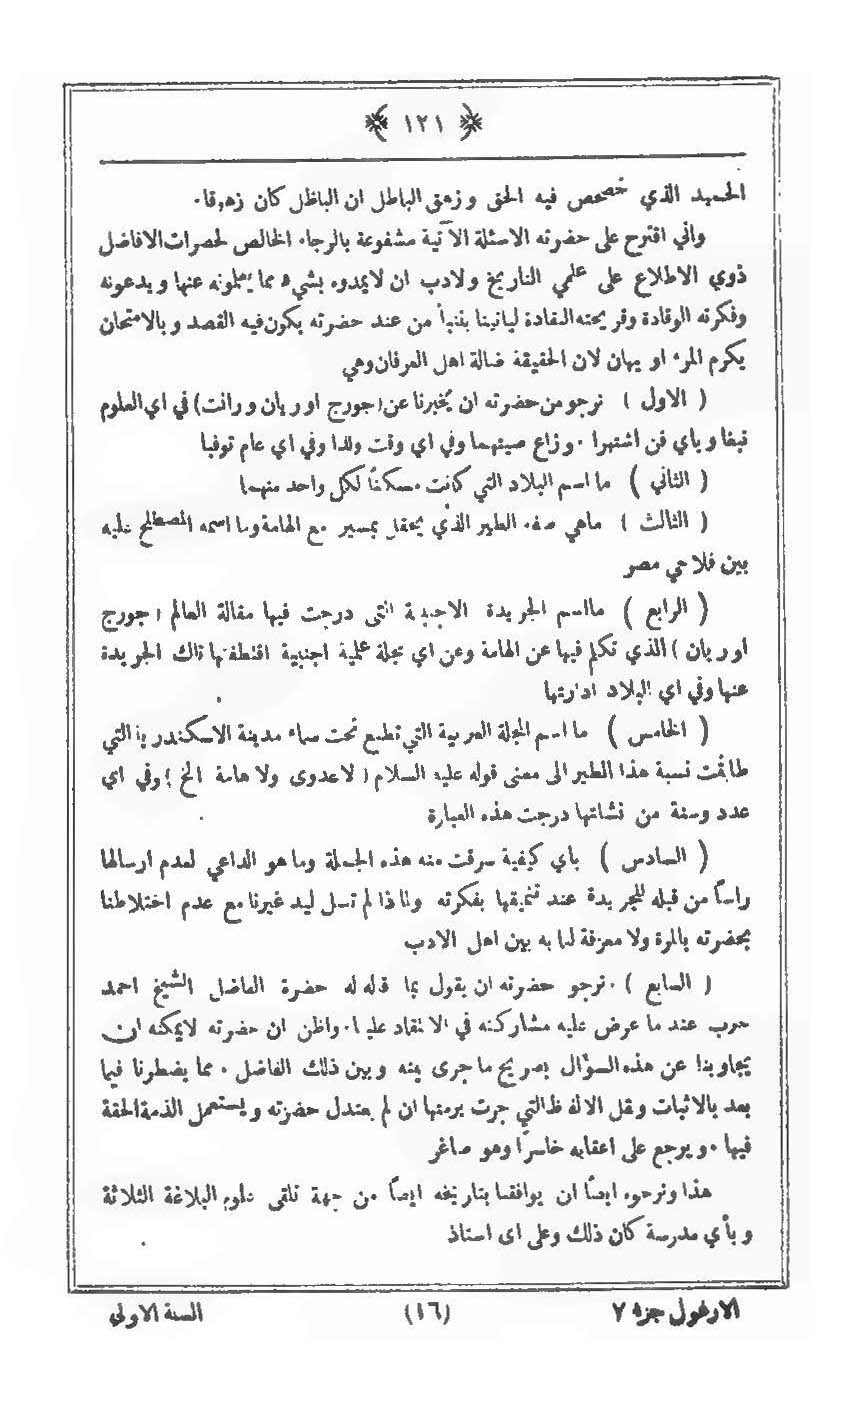 ﴿ ١٢١ ﴾
الحميد الذي حصحص فيه الحق وزهق الباطل ان الباطل كان زهوقا .
واني اقترح على حضرته الاسئلة الآتية مشفوعة بالرجاء الخالص لحضرات الافاضل
ذوي الاطلاع على علمي التاريخ ولادب ان لايمدوه بشيء مما يعلمونه عنها ويدعونه
وفكرته الوقادة وقريحته النقادة ليانينا بفنبأ من عند حضرته يكون فيه القصد وبالامتحان
يكرم المرء او يهان لان الحقيقة ضالة اهل العرفان وهي
( الاول ) نرجو من حضرته ان يخبرنا عن (جورج اوريان ورانت) في اي العلوم
نبغا وباي فن اشتهرا . وزاع صيتهما وفي اي وقت ولدا وفي اي عام توفيا
( الثاني ) ما اسم البلاد التي كانت مسكنًا لكل واحد منهما
( الثالث ) ماهي صفة الطير الذي يحفل بمسير مع الهامة وما اسمه المصطلح عليه
بين فلاحي مصر
( الرابع ) مااسم الجريدة الاجنبية التى درجت فيها مقالة العالم ( جورج
اوريان ) الذي تكلم فيها عن الهامة وعن اي مجلة علمية اجنبية اقتطفتها تلك الجريدة
عنها وفي اي البلاد ادارتها
( الخامس ) ما اسم المجلة العربية التي تطبع تحت سماء مدينة الاسكندرية التي
طابقت نسبة هذا الطير الى معنى قوله عليه السلام ( لاعدوى ولا هامة الخ ) وفي اي
عدد وسنة من نشاتها درجت هذه العبارة
( السادس ) باي كيفية سرقت منه هذه الجملة وما هو الداعي لعدم ارسالها
راساً من قبله للجريدة عند تنميقها بفكرته ولماذا لم تسل ليد غيرنا مع عدم اختلاطنا
بحضرته بالمرة ولا معرفة لنا به بين اهل الادب
( السابع ) . نرجو حضرته ان يقول بما قاله له حضرة الفاضل الشيخ احمد
حرب عند ما عرض عليه مشاركته في الانتقاد علينا . واظن ان حضرته لايمكنه ان
يجاوبنا عن هذه السؤال بصريح ما جرى بينه وبين ذلك الفاضل . مما يضطرنا فيما
بعد بالاثبات ونقل الالفاظ التي جرت برمتها ان لم يعتدل حضرته ويستعمل الذمة الحقة
فيها . ويرجع على اعقابه خاسرًا وهو صاغر
هذا ونرجوه ايضًا ان يوافقنا بتاريخه ايضًا من جهة تلقى علوم البلاغة الثلاثة
وبأي مدرسة كان ذلك وعلى اى استاذ
الارغول جزء ٧
(١٦)
السنة الاولى